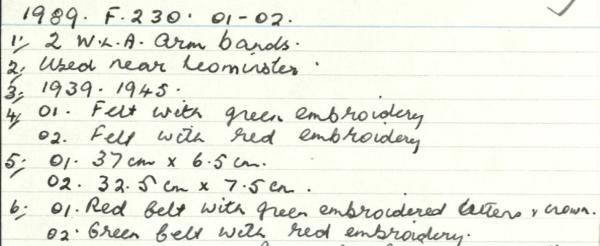 1989. F. 230. 01-02.
1; 2 W.L.A. arm bands.
2; Used near Leominster.
3; 1939. 1945.
4; 01. Felt with green embroidery
02. Felt with red embroidery
5; 01. 37 cm x 6.5 cm.
02. 32.5 cm x 7.5 cm.
6; 01. Red felt with green embroidered letters & crown.
02. Green felt with red embroidery.